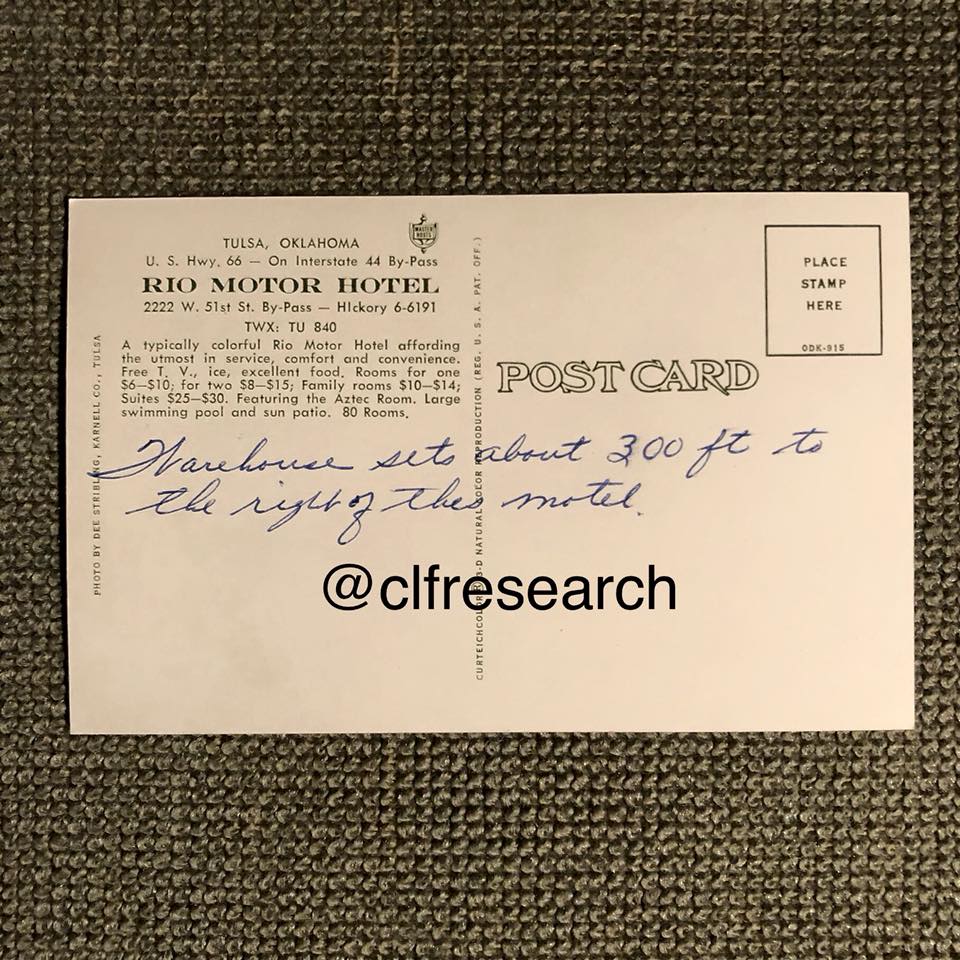 TULSA, OKLAHOMA
U. S. Hwy. 66 — On Interstate 44 By-Pass
RIO MOTOR HOTEL
2222 W. 51st St. By-Pass — HIckory 6-6191
TWX: TU 840
A typically colorful Rio Motor Hotel affording
the utmost in service, comfort and convenience.
Free T. V., ice, excellent food. Rooms for one
$6—$10; for two $8—$15; Family rooms $10—$14;
Suites $25—$30. Featuring the Aztec Room. Large
swimming pool and sun patio. 80 Rooms.
MASTER HOSTS
PHOTO BY DEE STRIBLING, KARNELL CO., TULSA
CURTEICHCOLOR 3-D NATURAL COLOR REPRODUCTION (REG. U. S. A. PAT. OFF.)
POST CARD
PLACE
STAMP
HERE
ODK-915
Warehouse sets about 300 ft to
the right of this motel.
@clfresearch